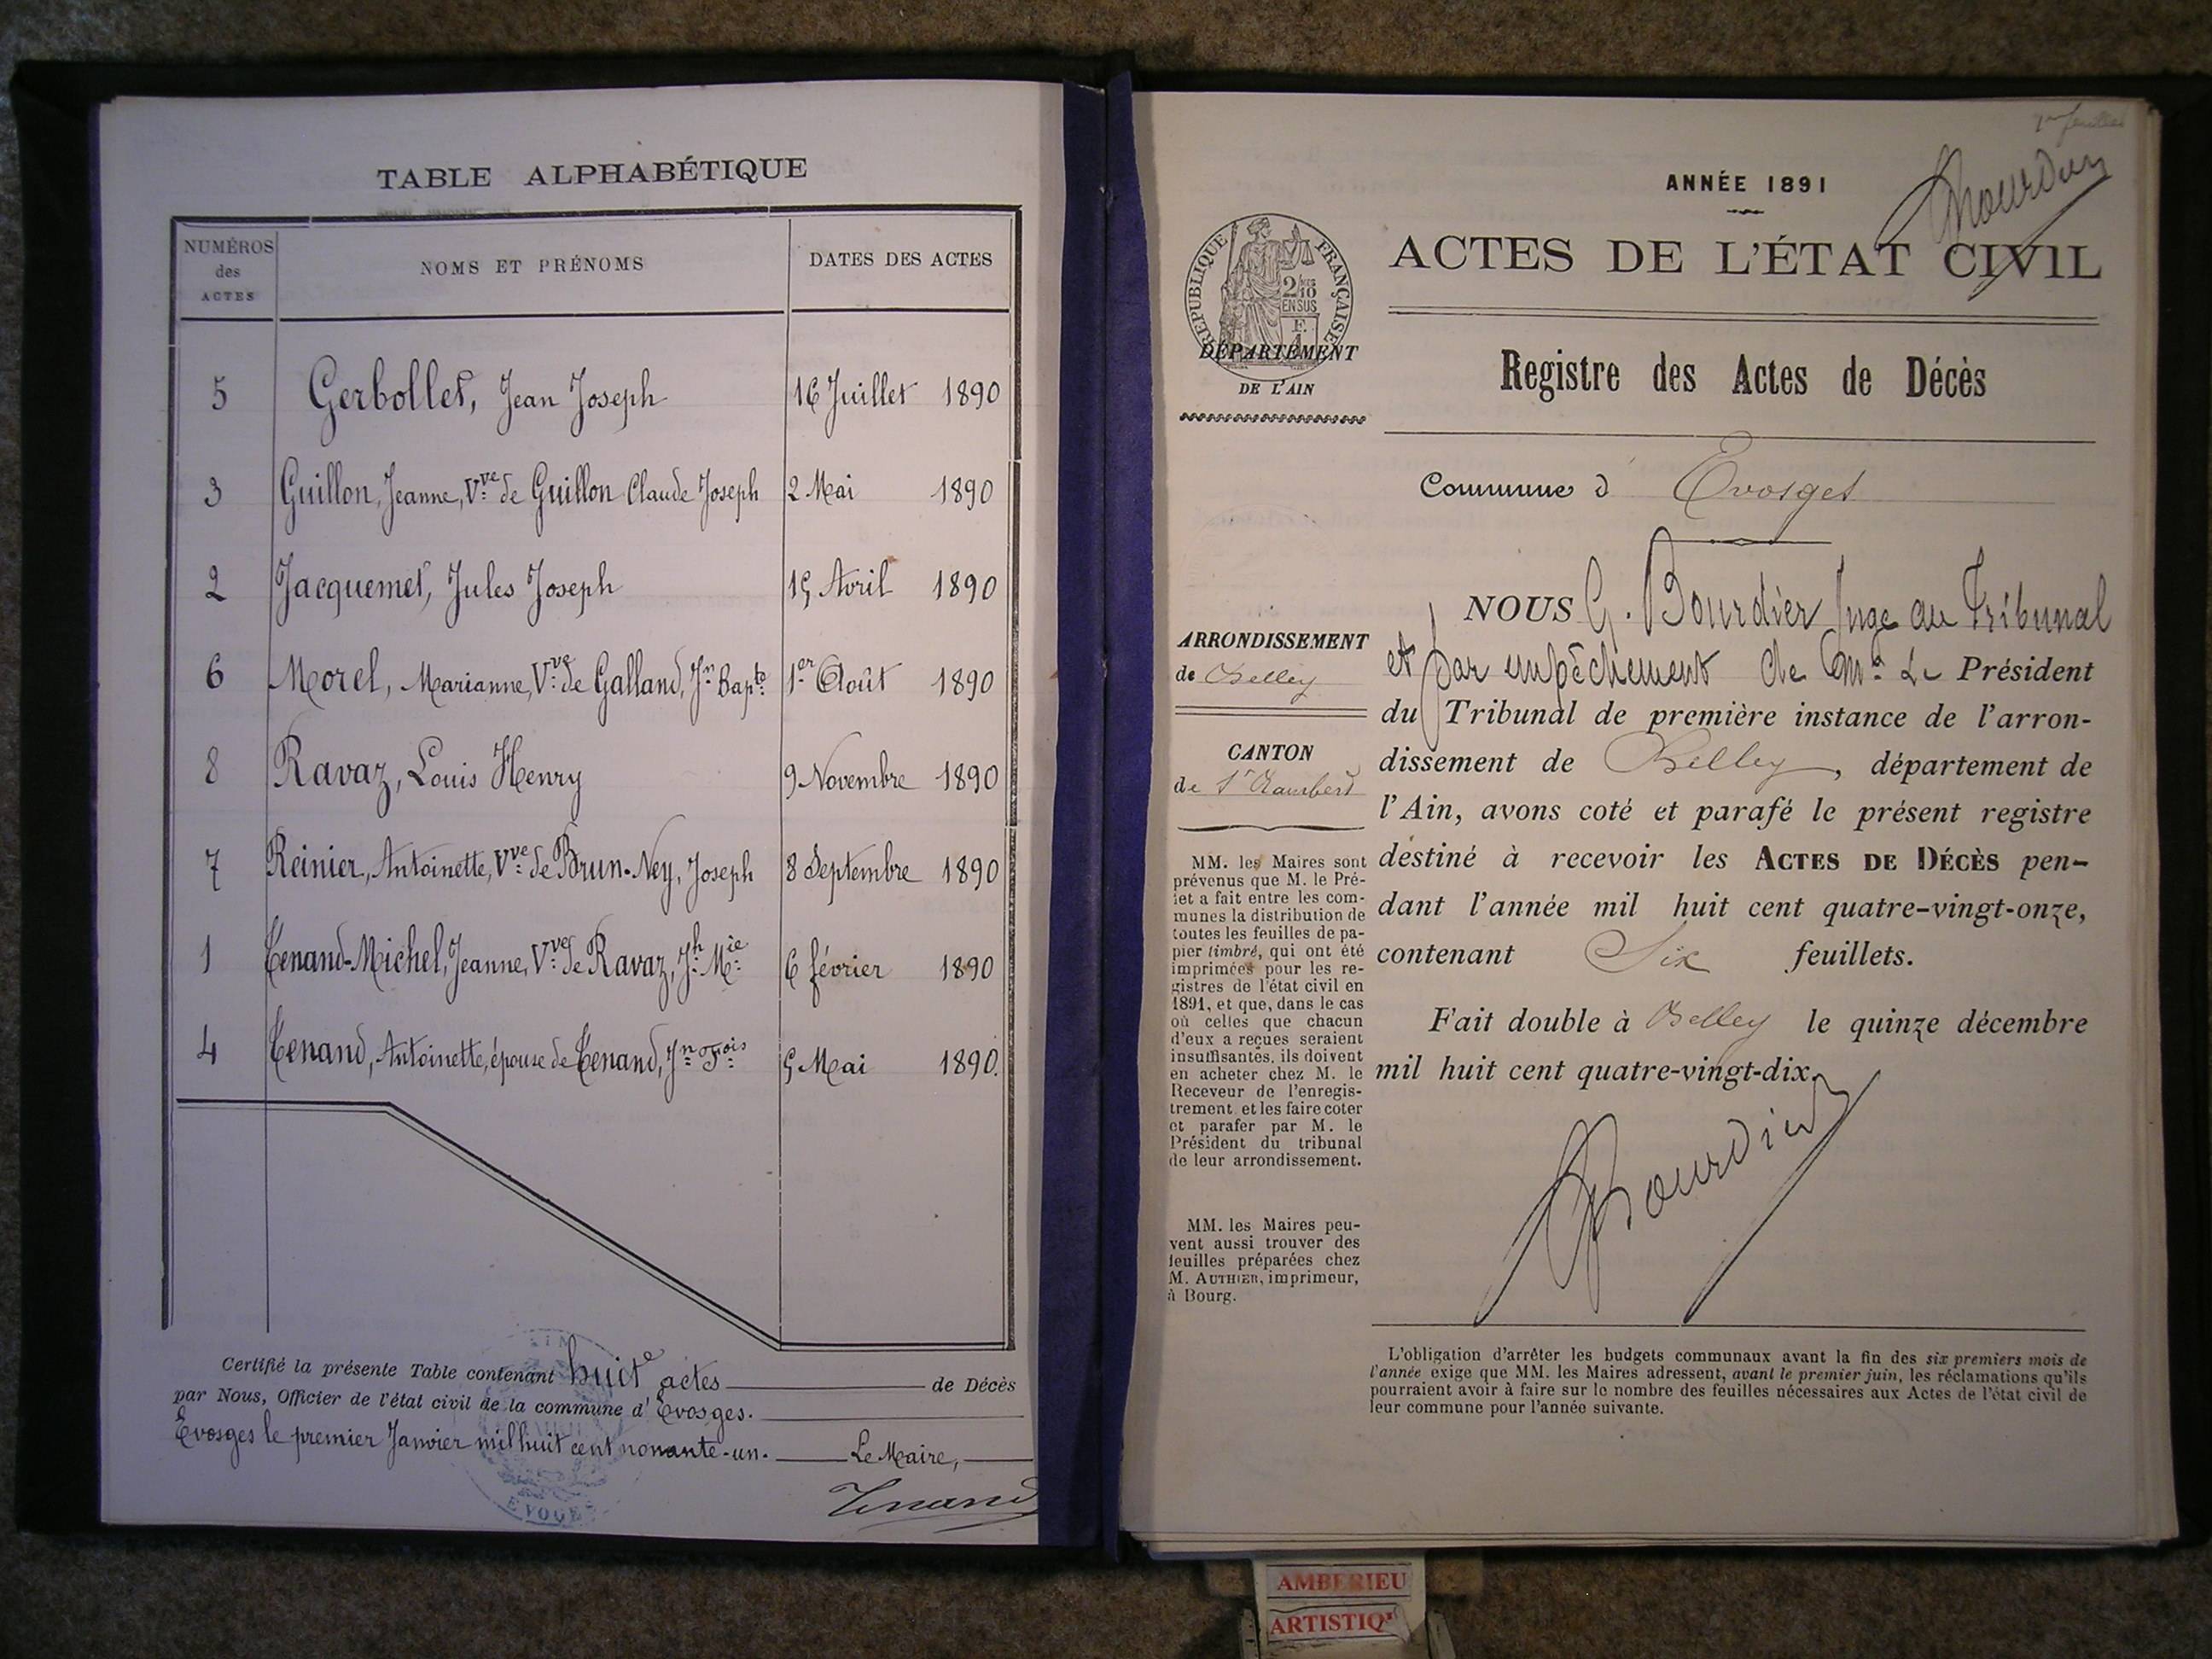 TABLE ALPHABÉTIQUE
NUMÉROS des ACTES
NOMS ET PRÉNOMS
DATES DES ACTES
5 Gerbollet, Jean Joseph 16 Juillet 1890
3 Guillon, Jeanne, Vve de Guillon Claude Joseph 2 Mai 1890
2 Jacquemet, Jules Joseph 15 Avril 1890
6 Morel, Marianne, Vve de Galland, Jn Bapte 1er Août 1890
8 Ravaz, Louis Henry 9 Novembre 1890
7 Reinier, Antoinette, Vve de Brun-Ney, Joseph 8 Septembre 1890
1 Tenand-Michel, Jeanne, Vve de Ravaz, Jh Mie 6 février 1890
4 Tenand, Antoinette, épouse de Tenand, Jn Fois 5 Mai 1890.
Certifié la présente Table contenant huit actes de Décès
par Nous, Officier de l'état civil de la commune d'Evosges.
Evosges le premier Janvier mil huit cent nonante-un. Le Maire,
Tenand
EVOGES
1er feuillet
Bourdier
ANNÉE 1891
ACTES DE L'ÉTAT CIVIL
RÉPUBLIQUE FRANÇAISE
2/10
EN SUS
DÉPARTEMENT
DE L'AIN
Registre des Actes de Décès
Commune d'Evosges
ARRONDISSEMENT
de Belley
CANTON
de St Rambert
MM. les Maires sont
prévenus que M. le Pré-
fet a fait entre les com-
munes la distribution de
toutes les feuilles de pa-
pier timbré, qui ont été
imprimées pour les re-
gistres de l'état civil en
1891, et que, dans le cas
où celles que chacun
d'eux a reçues seraient
insuffisantes, ils doivent
en acheter chez M. le
Receveur de l'enregis-
trement et les faire coter
et parafer par M. le
Président du tribunal
de leur arrondissement.
MM. les Maires peu-
vent aussi trouver des
feuilles préparées chez
M. AUTHIER, imprimeur,
à Bourg.
NOUS G. Bourdier Juge au Tribunal
et par empêchement de Mr Le Président
du Tribunal de première instance de l'arron-
dissement de Belley, département de
l'Ain, avons coté et parafé le présent registre
destiné à recevoir les ACTES DE DÉCÈS pen-
dant l'année mil huit cent quatre-vingt-onze,
contenant Six feuillets.
Fait double à Belley le quinze décembre
mil huit cent quatre-vingt-dix.
Bourdier
L'obligation d'arrêter les budgets communaux avant la fin des six premiers mois de
l'année exige que MM. les Maires adressent, avant le premier juin, les réclamations qu'ils
pourraient avoir à faire sur le nombre des feuilles nécessaires aux Actes de l'état civil de
leur commune pour l'année suivante.
AMBERIEU
ARTISTIQ